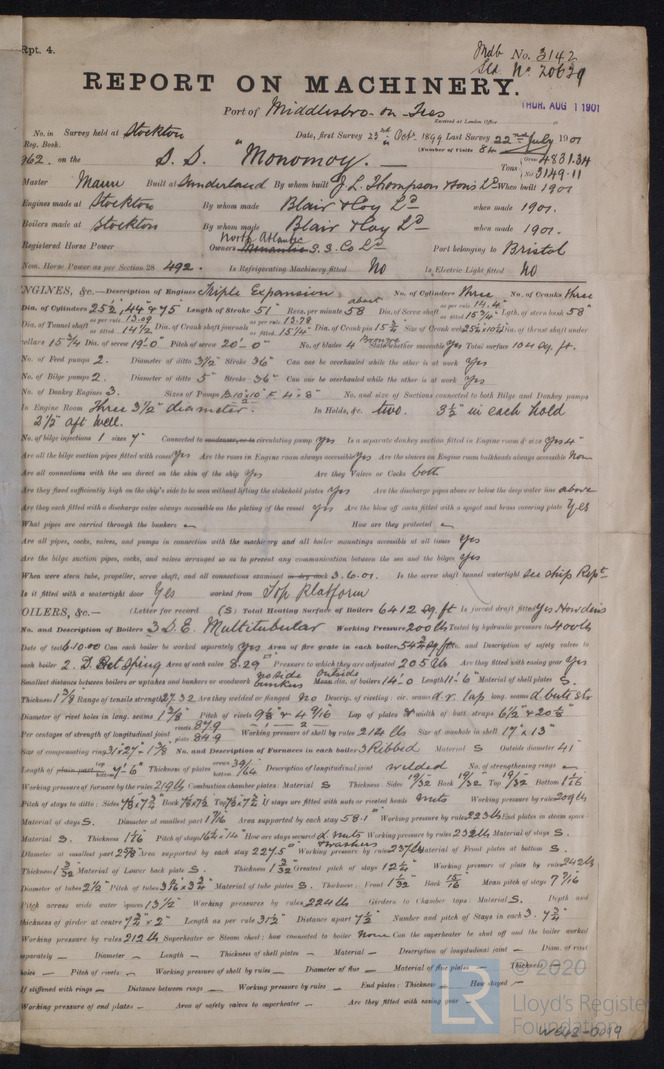 Rpt. 4.
Mdb No. 3142
Sld No 20629
REPORT ON MACHINERY.
Port of Middlesbro-on-Tees
THUR. AUG 1 1901
Received at London Office
No. in Survey held at Stockton Date, first Survey 23rd Oct. 1899 Last Survey 22nd July 1901
Reg. Book. (Number of Visits 84)
962. on the S.S. "Monomoy. Tons Gross 4831.34 Net 3149.11
Master Mann Built at Sunderland By whom built J. L. Thompson & Sons Ld When built 1901
Engines made at Stockton By whom made Blair & Coy Ld when made 1901.
Boilers made at Stockton By whom made Blair & Coy Ld when made 1901.
Registered Horse Power Owners North Atlantic S.S. Co Ld Port belonging to Bristol
Nom. Horse Power as per Section 28 492. Is Refrigerating Machinery fitted No Is Electric Light fitted No
ENGINES, &c.— Description of Engines Triple Expansion No. of Cylinders Three No. of Cranks three
Dia. of Cylinders 25½, 44 & 75 Length of Stroke 51" Revs. per minute about 58 Dia. of Screw shaft as per rule 14.4" as fitted 15¾" Lgth. of stern bush 58"
Dia. of Tunnel shaft as per rule 13.09 as fitted 14½ Dia. of Crank shaft journals as per rule 13.78 as fitted 15¼" Dia. of Crank pin 15½ Size of Crank webs Dia. of thrust shaft under
collars 15¾ Dia. of screw 19'-0" Pitch of screw 20'-0" No. of blades 4 Bronze State whether moveable Yes Total surface 104 sq. ft.
No. of Feed pumps 2. Diameter of ditto 3½" Stroke 36" Can one be overhauled while the other is at work Yes
No. of Bilge pumps 2. Diameter of ditto 5" Stroke 36" Can one be overhauled while the other is at work Yes
No. of Donkey Engines 3. Sizes of Pumps No. and size of Suctions connected to both Bilge and Donkey pumps
In Engine Room Three 3½" diameter. In Holds, &c. two. 3½" in each hold
2½" aft well.
No. of bilge injections 1 sizes 7" Connected to condenser, or to circulating pump Yes Is a separate donkey suction fitted in Engine room & size Yes 4"
Are all the bilge suction pipes fitted with roses Yes Are the roses in Engine room always accessible Yes Are the sluices on Engine room bulkheads always accessible None
Are all connections with the sea direct on the skin of the ship Yes Are they Valves or Cocks both
Are they fixed sufficiently high on the ship's side to be seen without lifting the stokehold plates Yes Are the discharge pipes above or below the deep water line above
Are they each fitted with a discharge valve always accessible on the plating of the vessel Yes Are the blow off cocks fitted with a spigot and brass covering plate Yes
What pipes are carried through the bunkers — How are they protected —
Are all pipes, cocks, valves, and pumps in connection with the machinery and all boiler mountings accessible at all times Yes
Are the bilge suction pipes, cocks, and valves arranged so as to prevent any communication between the sea and the bilges Yes
When were stern tube, propeller, screw shaft, and all connections examined in dry dock 3.6.01. Is the screw shaft tunnel watertight see ship Rept.
Is it fitted with a watertight door Yes worked from Top Platform
BOILERS, &c.— (Letter for record (S) Total Heating Surface of Boilers 6412 sq. ft Is forced draft fitted Yes Howdens
No. and Description of Boilers 3 S.E. Multitubular Working Pressure 200 lbs Tested by hydraulic pressure to 400 lbs
Date of test 6.10.00 Can each boiler be worked separately Yes Area of fire grate in each boiler No. and Description of safety valves to
each boiler 2. D. Bet Spring Area of each valve 8.29" Pressure to which they are adjusted 205 lbs Are they fitted with easing gear Yes
Smallest distance between boilers or uptakes and bunkers or woodwork no side bunkers Outside Mean dia. of boilers 14'-0 Length 11'-6" Material of shell plates S.
Thickness 1⅜ Range of tensile strength 27.32 Are they welded or flanged No Descrip. of riveting: cir. seams d.r. lap long. seams d butt str
Diameter of rivet holes in long. seams 1⅜" Pitch of rivets 9⅛" & 4 9/16 Lap of plates or width of butt straps 6½" & 20⅝"
Per centages of strength of longitudinal joint rivets 87.9 plate 84.9 Working pressure of shell by rules 214 lbs Size of manhole in shell 17" x 13"
Size of compensating ring 31 x 27 - 1⅜ No. and Description of Furnaces in each boiler 3 Ribbed Material S Outside diameter 41"
Length of plain part top bottom 7'-6" Thickness of plates crown 39/64 bottom Description of longitudinal joint welded No. of strengthening rings —
Working pressure of furnace by the rules 219 lbs Combustion chamber plates: Material S Thickness: Sides 19/32 Back 19/32 Top 19/32 Bottom 1 1/16
Pitch of stays to ditto: Sides Back Top If stays are fitted with nuts or riveted heads Nuts Working pressure by rules 209 lbs
Material of stays S. Diameter at smallest part 1 7/16 Area supported by each stay 58.1" Working pressure by rules 223 lbs End plates in steam space:
Material S. Thickness 1 1/16 Pitch of stays 16¼ x 14" How are stays secured d. nuts & washers Working pressure by rules 232 lbs Material of stays S.
Diameter at smallest part 2⅞ Area supported by each stay 227.5" Working pressure by rules 237 lbs Material of Front plates at bottom S.
Thickness Material of Lower back plate S. Thickness Greatest pitch of stays 12¼" Working pressure of plate by rules 242 lbs
Diameter of tubes 2½" Pitch of tubes Material of tube plates S. Thickness: Front 1 1/32 Back 15/16 Mean pitch of stays 7 7/16
Pitch across wide water spaces 13½" Working pressures by rules 224 lbs Girders to Chamber tops: Material S. Depth and
thickness of girder at centre 7¾" x 2" Length as per rule 31½" Distance apart 7½" Number and pitch of Stays in each 3. 7¾"
Working pressure by rules 212 lbs Superheater or Steam chest; how connected to boiler None Can the superheater be shut off and the boiler worked
separately — Diameter — Length — Thickness of shell plates — Material — Description of longitudinal joint — Diam. of rivet
holes — Pitch of rivets — Working pressure of shell by rules — Diameter of flue — Material of flue plates — Thickness —
If stiffened with rings — Distance between rings — Working pressure by rules — End plates: Thickness — How stayed —
Working pressure of end plates — Area of safety valves to superheater — Are they fitted with easing gear —
© 2020
LR
Lloyd's Register
Foundation
W642-0019